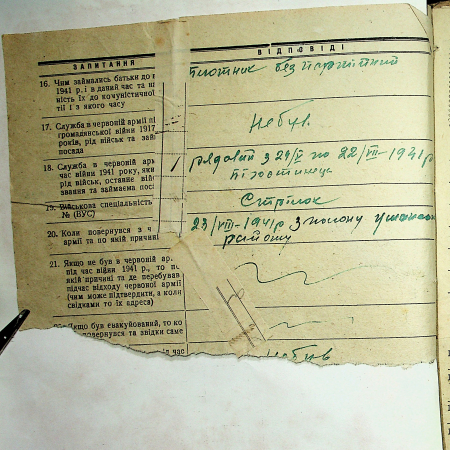 ЗАПИТАННЯ
ВІДПОВІДІ
16. Чим займались батьки до в
1941 р. і в даний час та н
ність їх до комуністичної
тії і з якого часу
плотник безпартійний
17. Служба в червоній армії
громадянської війни 1917
років, рід військ та зай
посада
Небув
18. Служба в червоній арм
час війни 1941 року, яки
рід військ, останнє вій
звання та займаєма пос
рядовий з 24/V по 22/VIII-1941р
19. Військова спеціальність
№ (ВУС)
Стрілок
20. Коли повернувся з ч
армії та по якій причині
23/VIII-1941р з полону
району
21. Якщо не був в червоній арм
під час війни 1941 р., то по
якій причині та де перебував
підчас відходу червоної армії
(чим може підтвердити, а коли
свідками то їх адреса)
Якщо був евакуйований, то ко
повернувся та звідки саме
час
небув